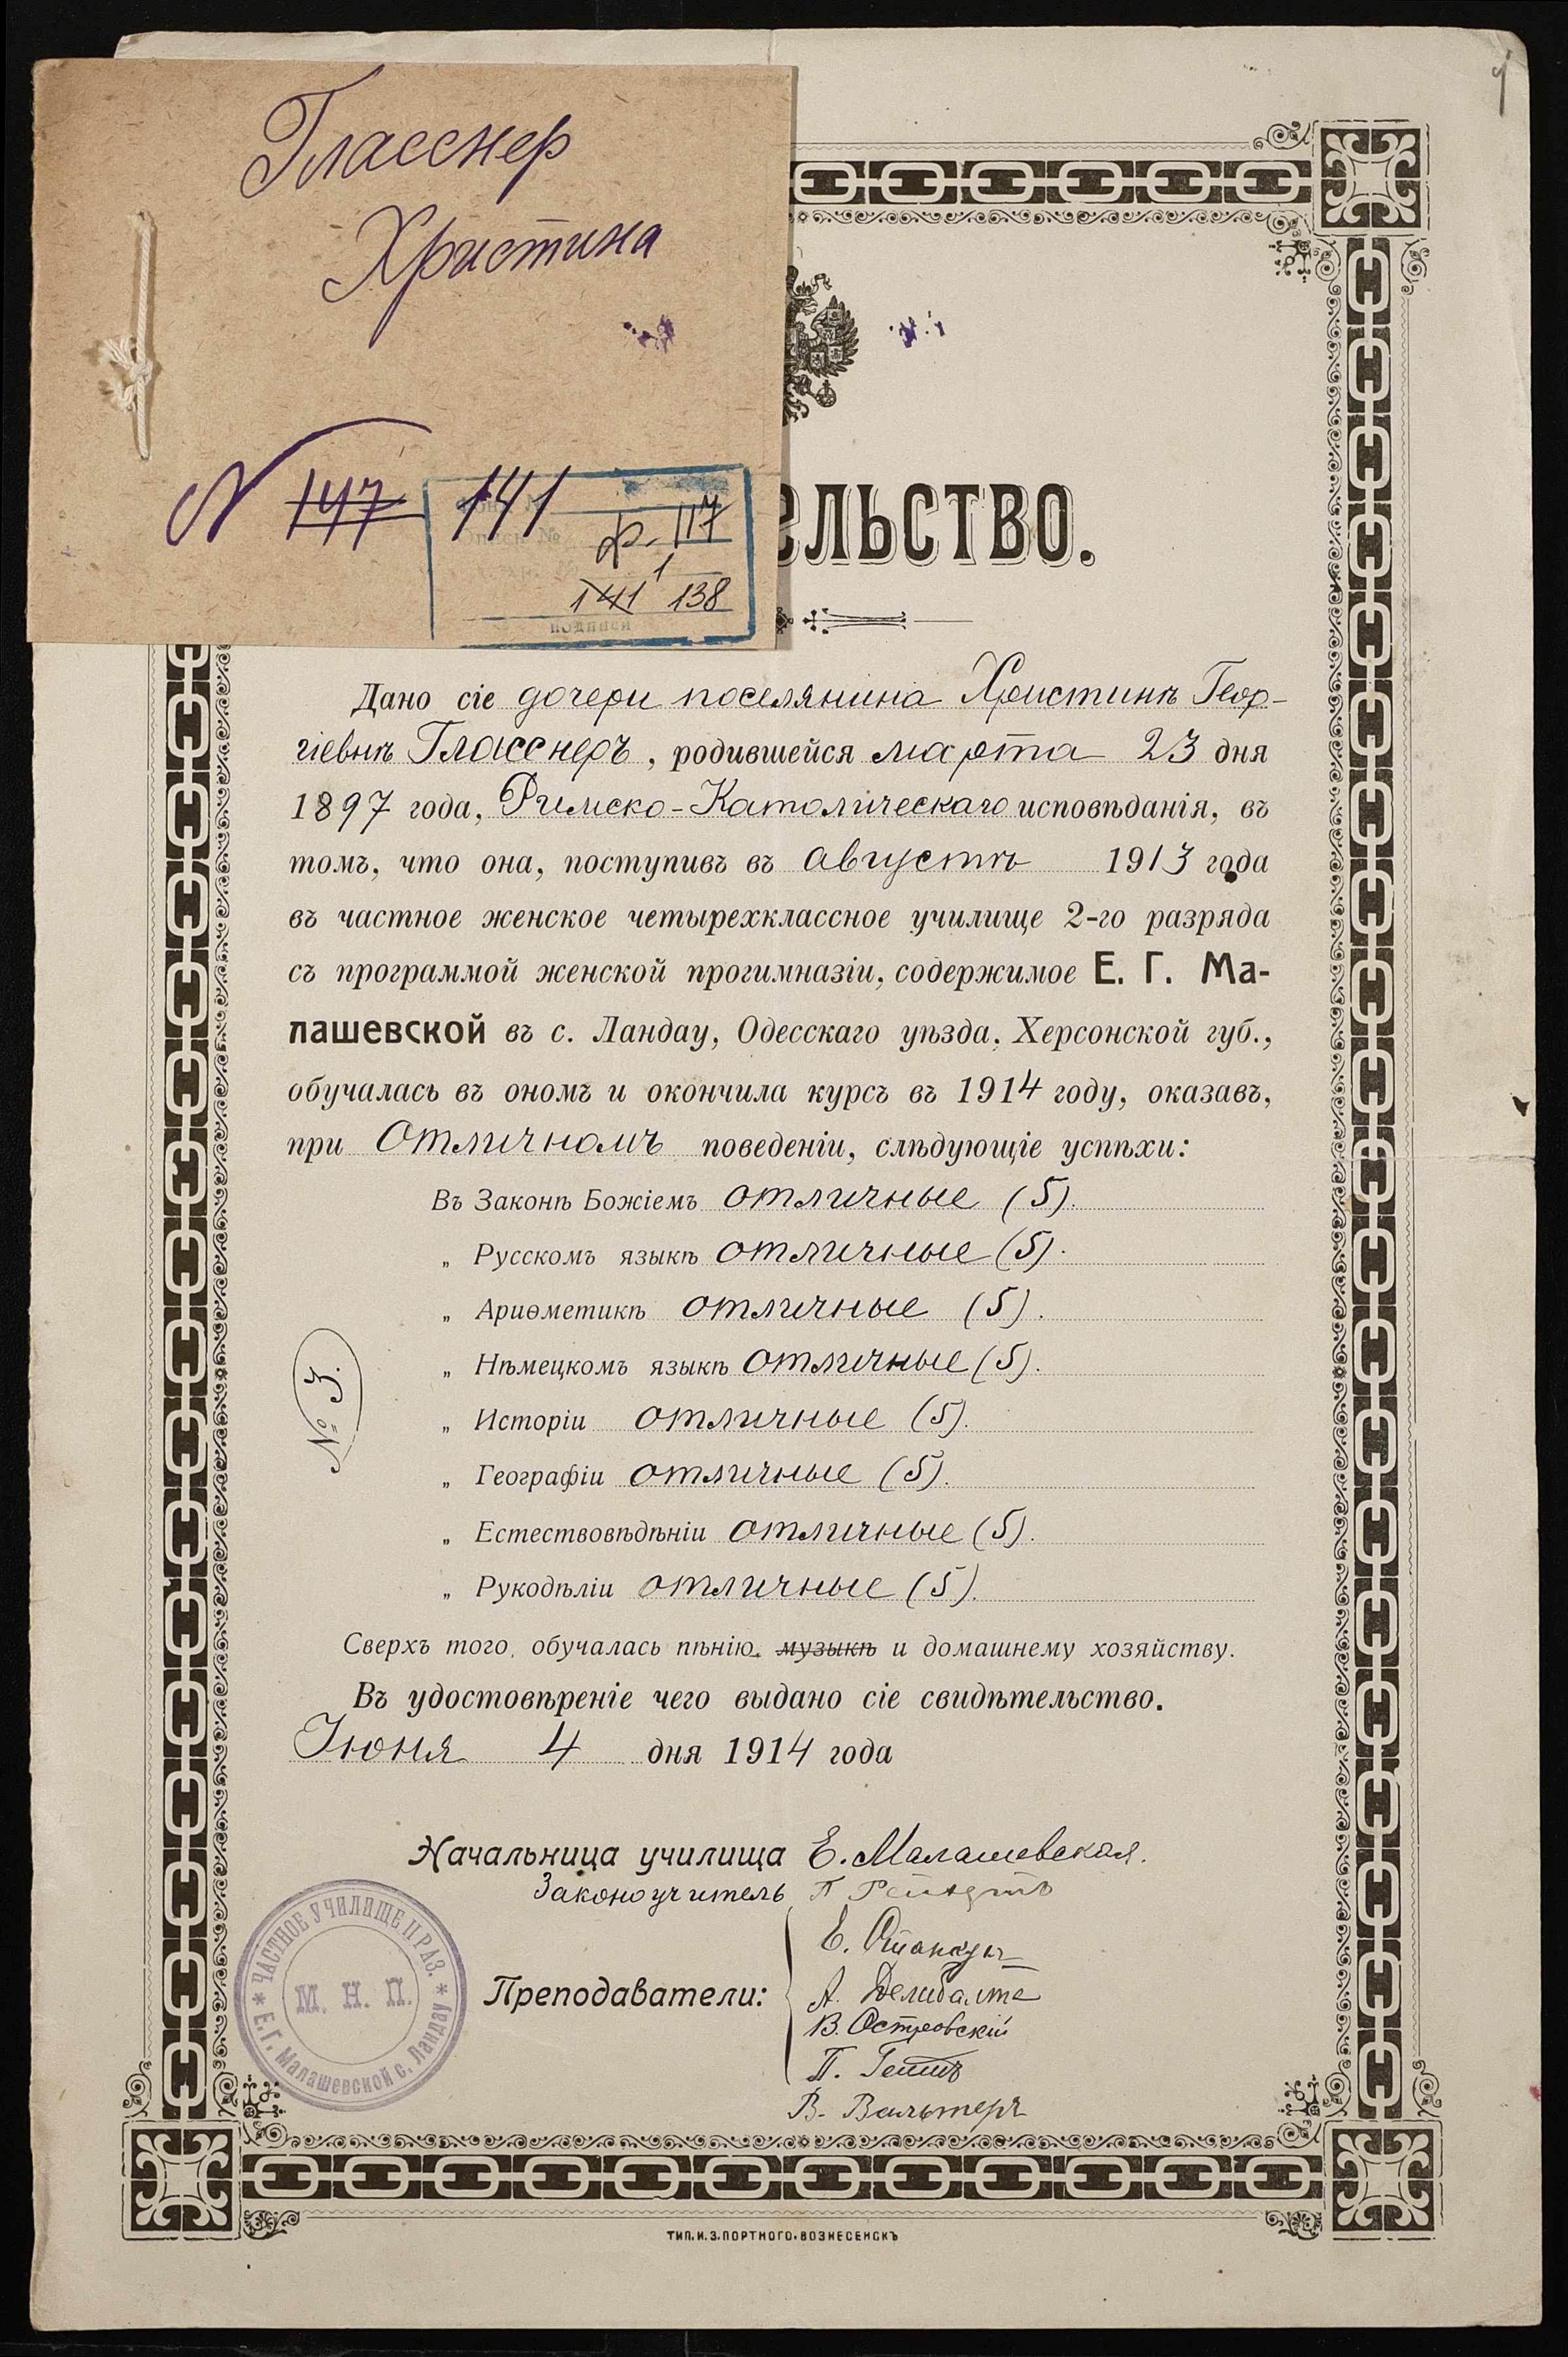 Гласснер
Христина
N 147 141
ф. 117
1
141 138
подписи
ельство.
Дано сіе дочери поселянина Христинѣ Геор-
гіевнѣ Гласснеръ, родившейся марта 23 дня
1897 года, Римско-Католическаго исповѣданія, въ
томъ, что она, поступивъ въ августѣ 1913 года
въ частное женское четырехклассное училище 2-го разряда
съ программой женской прогимназіи, содержимое Е. Г. Ма-
лашевской въ с. Ландау, Одесскаго уѣзда, Херсонской губ.,
обучалась въ ономъ и окончила курсъ въ 1914 году, оказавъ,
при Отличномъ поведеніи, слѣдующіе успѣхи:
Въ Законѣ Божіемъ отличные (5).
„ Русскомъ языкѣ отличные (5).
„ Ариѳметикѣ отличные (5).
„ Нѣмецкомъ языкѣ отличные (5).
„ Исторіи отличные (5).
„ Географіи отличные (5).
„ Естествовѣдѣніи отличные (5).
„ Рукодѣліи отличные (5).
№ 3.
Сверхъ того, обучалась пѣнію, музыкѣ и домашнему хозяйству.
Въ удостовѣреніе чего выдано сіе свидѣтельство.
Іюня 4 дня 1914 года
Начальница училища Е. Малашевская.
Законоучитель П
Преподаватели:
Е.
А. Делибалта
В. Островскій
П.
В. Вальтеръ
ЧАСТНОЕ УЧИЛИЩЕ II РАЗ.
М. Н. П.
Е. Г. Малашевской с. Ландау
ТИП. И. З. ПОРТНОГО. ВОЗНЕСЕНСКЪ